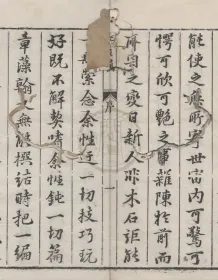 能使之應寄世宙內可驚可
愕可欣可艷之事雜陳於前而
之變日新人非木石詎能
序
索念余性于一切技巧玩
好既不解嗜余性鈍一切篇
章藻翰無能撰結時把一編